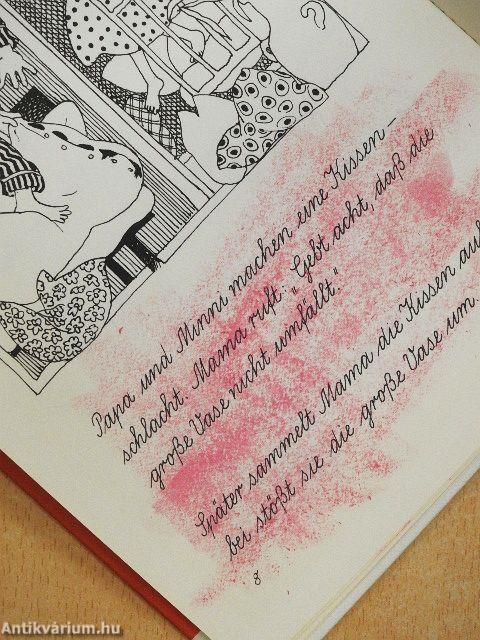 Papa und Minni machen eine Kissen-
schlacht. Mama ruft: „Gebt acht, daß die
große Vase nicht umfällt."
Später sammelt Mama die Kissen auf
bei stößt sie die große Vase um.
8
Antikvárium.hu